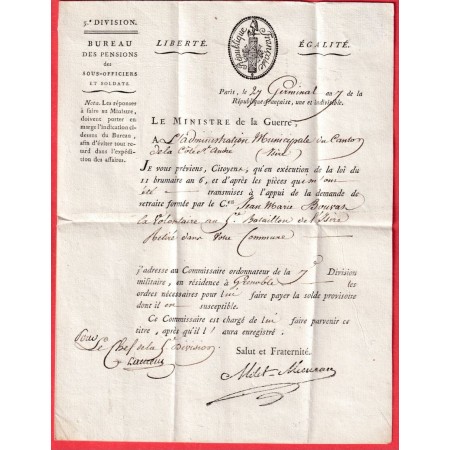 5.e DIVISION.
BUREAU
DES PENSIONS
DES
SOUS-OFFICIERS
ET SOLDATS.
Nota. Les réponses
à faire au Ministre,
doivent porter en
marge l'indication ci-
dessus du Bureau,
afin d'éviter tout re-
tard dans l'expédi-
tion des affaires.
LIBERTÉ. ÉGALITÉ.
République Française
Paris, le 27 Germinal an 7 de la
République française, une et indivisible.
LE MINISTRE de la Guerre,
A L'administration Municipale du Canton
de la Côte St. André (Isère)
JE vous préviens, Citoyens, qu'en exécution de la loi du
11 brumaire an 6, et d'après les pièces qui m'ont
été transmises à l'appui de la demande de
retraite formée par le C.en Jean Marie
Volontaire au 5.e Bataillon de l'Isère
Retiré dans Votre Commune
j'adresse au Commissaire ordonnateur de la 7.e Division
militaire, en résidence à Grenoble les
ordres nécessaires pour lui faire payer la solde provisoire
dont il est susceptible.
Ce Commissaire est chargé de lui faire parvenir ce
titre, après qu'il l'aura enregistré.
Salut et Fraternité.
Pour
Le Chef de la 5.e Division
Milet-Mureau